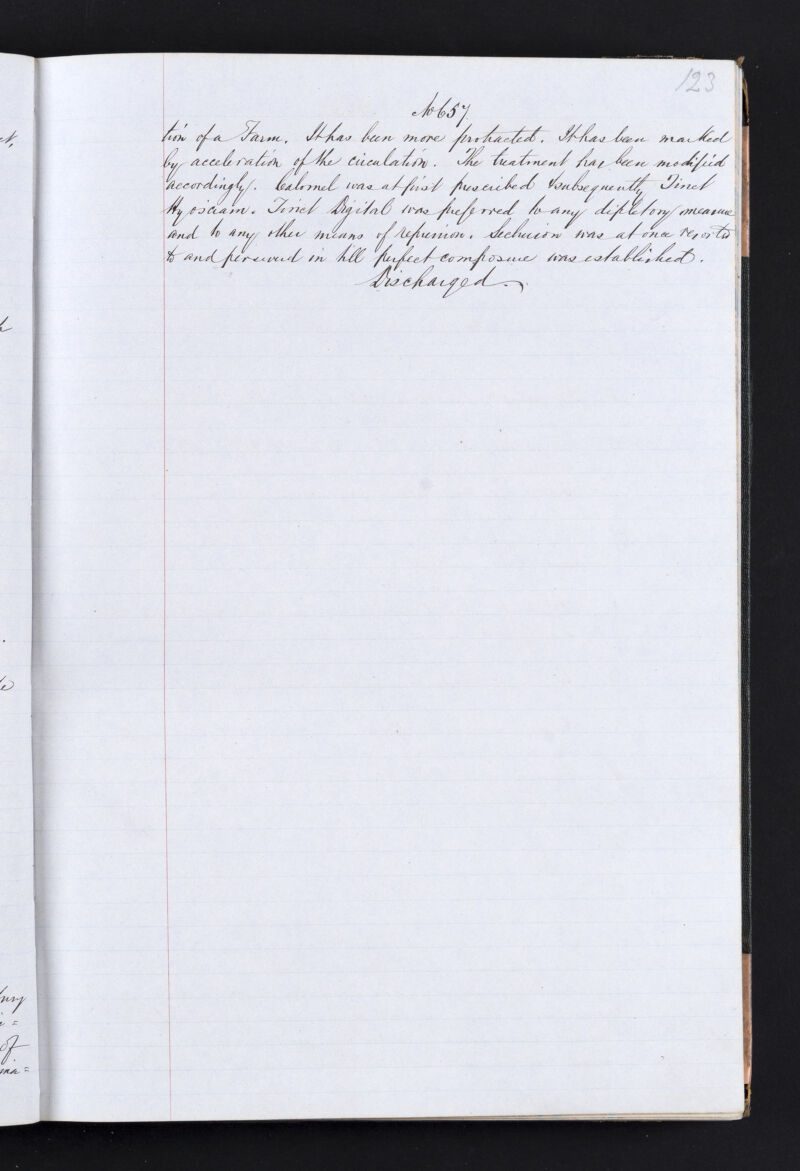 123
No 657
tion of a Farm. It has been more protracted. It has been marked
by acceleration of the circulation. The treatment has been modified
accordingly. Calomel was at first prescribed & subsequently Tinct
Hyosciam. Tinct Digital was preferred to any depletory measure
and to any other means of repression. Seclusion was at once resorted
to and persevered in till perfect composure was established.
Discharged.